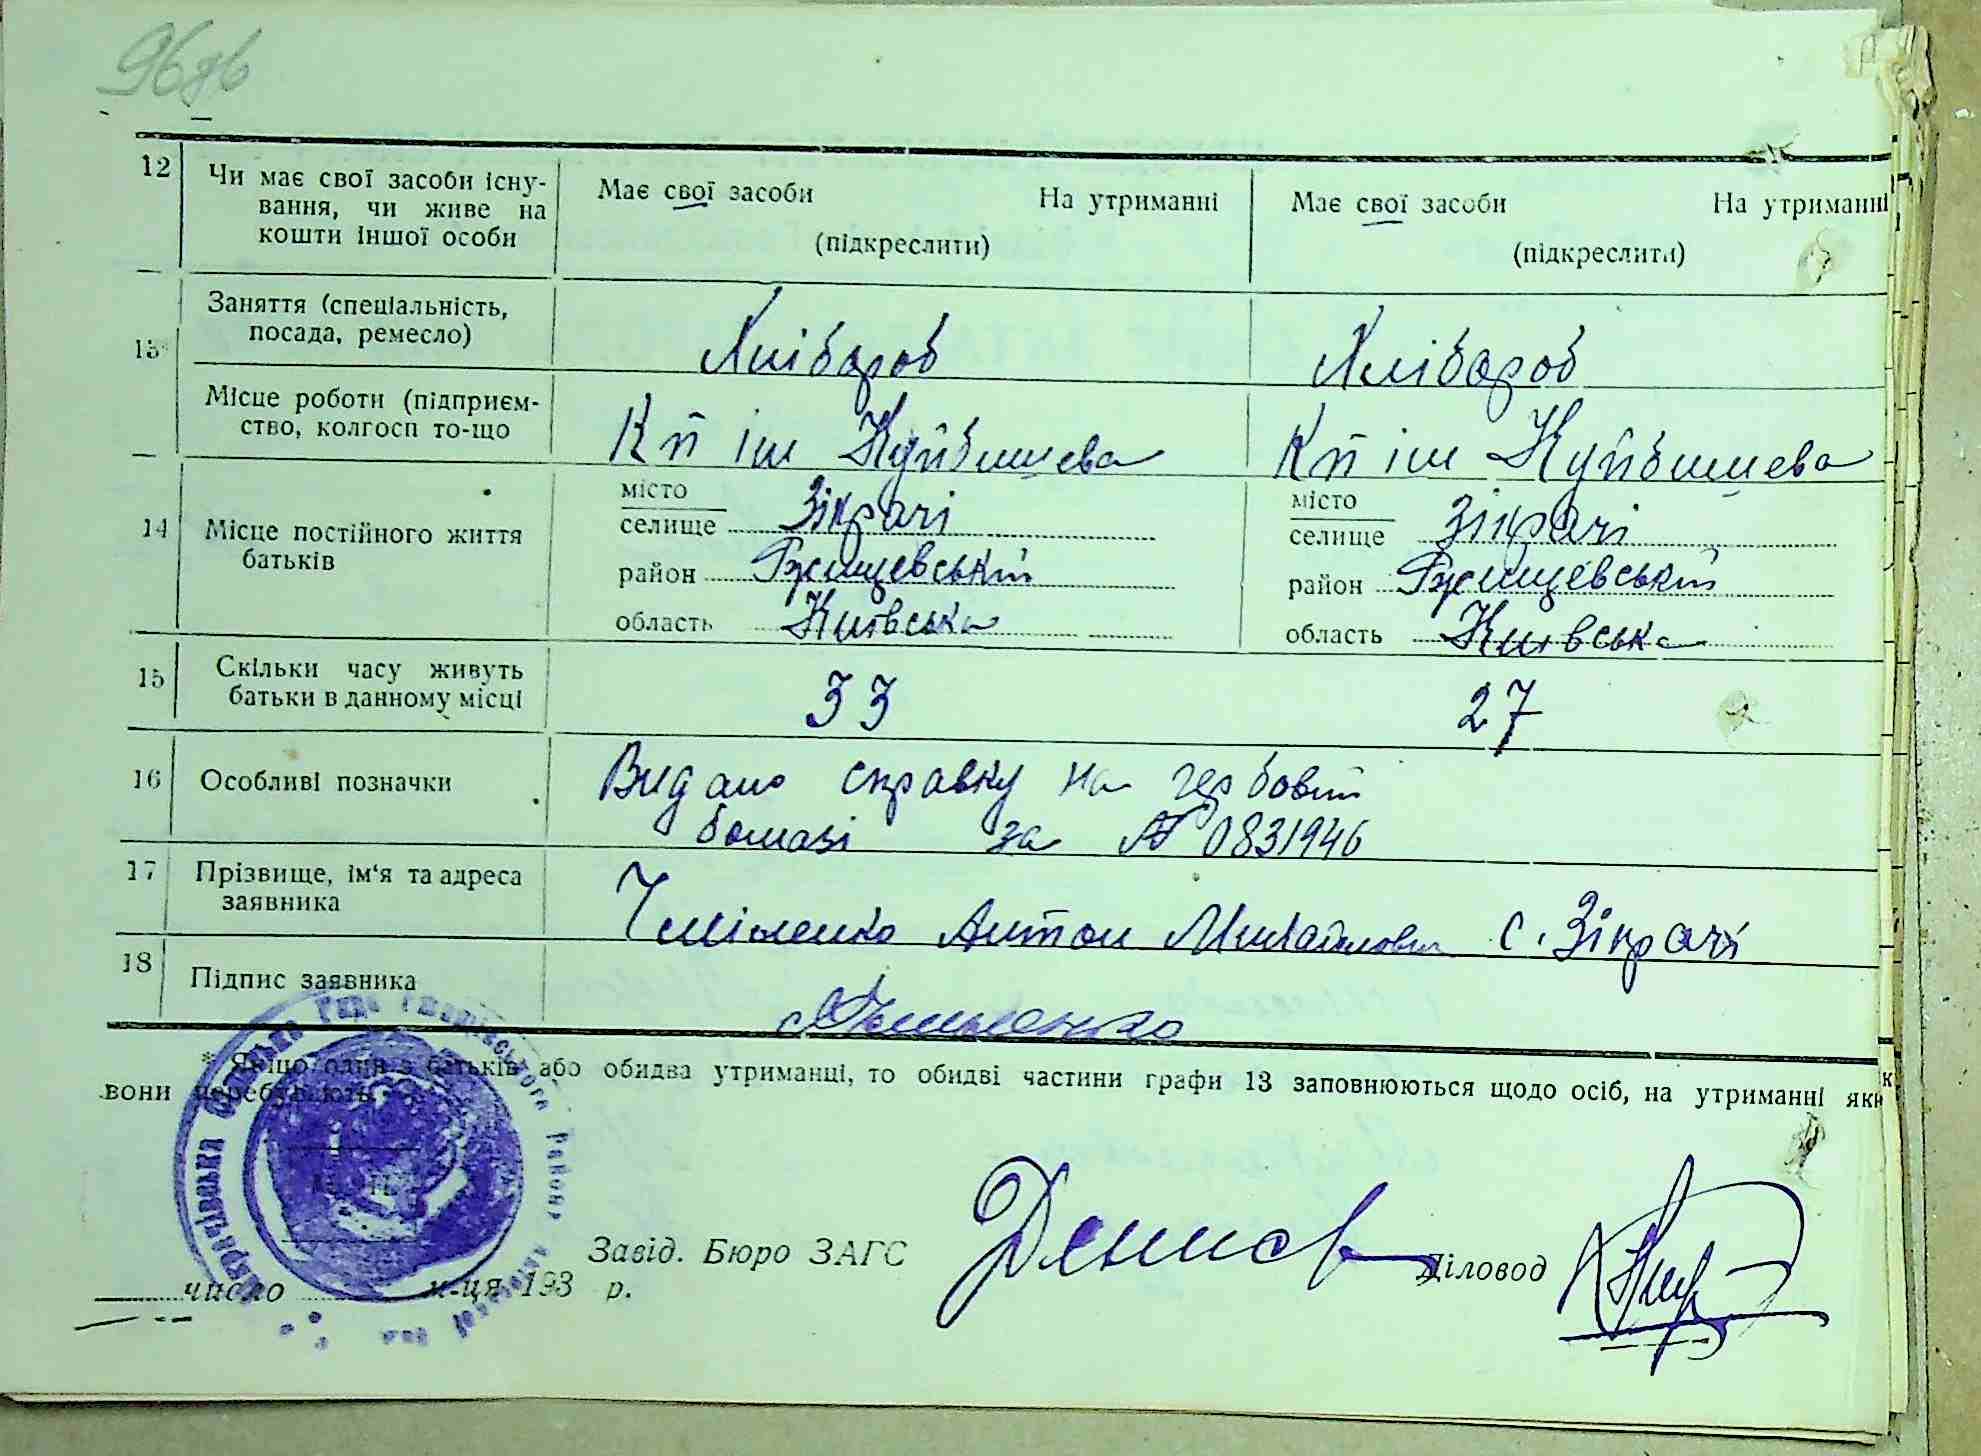 96зв
12 Чи має свої засоби існу- Має свої засоби На утриманні Має свої засоби На утриманні
вання, чи живе на
кошти іншої особи (підкреслити) (підкреслити)
Заняття (спеціальність,
13* посада, ремесло) Хлібороб Хлібороб
Місце роботи (підприєм-
ство, колгосп то-що Кп ім Куйбишева Кп ім Куйбишева
місто місто
14 Місце постійного життя селище Зікрачі селище Зікрачі
батьків район Ржищевський район Ржищевський
область Київська область Київська
15 Скільки часу живуть
батьки в данному місці 33 27
16 Особливі позначки Видано справку на гербовій
бомазі за № 0831946
17 Прізвище, ім'я та адреса
заявника Антон Михайлович с. Зікрачі
18 Підпис заявника
* Якщо один з батьків або обидва утриманці, то обидві частини графи 13 заповнюються щодо осіб, на утриманні як
вони перебувають.
Завід. Бюро ЗАГС Денисов Діловод
число м-ця 193 р.